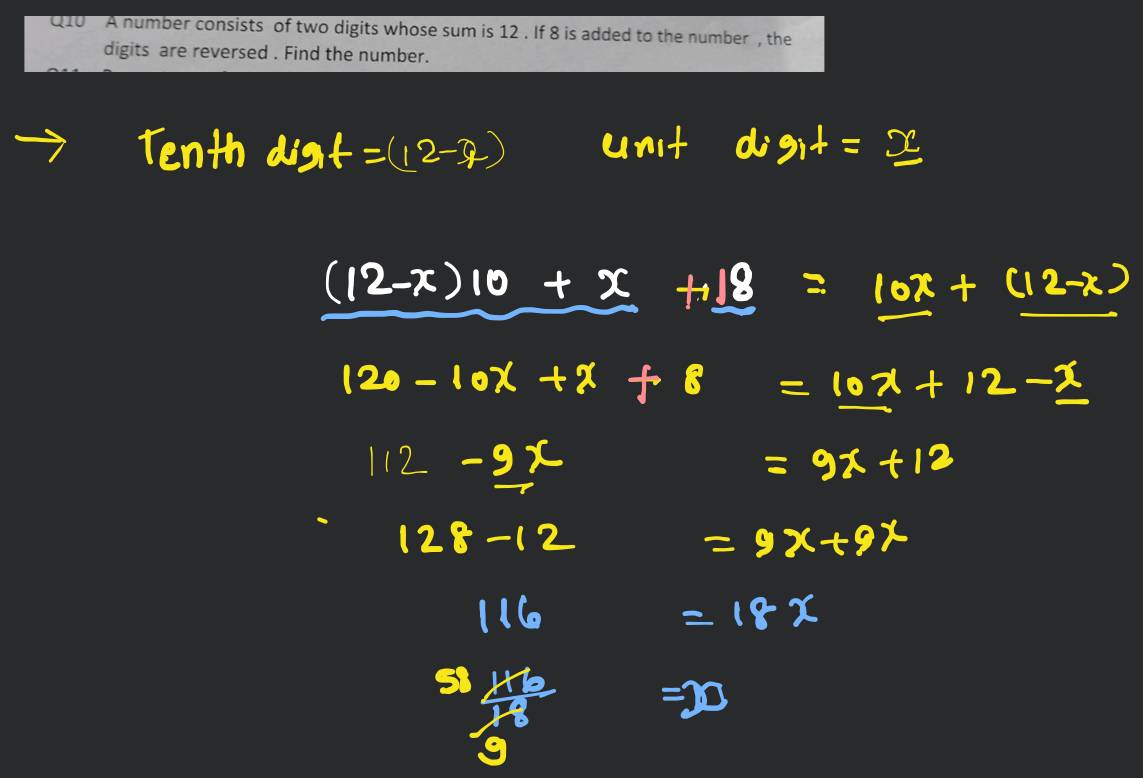 Q10 A number consists of two digits whose sum is 12 . If 8 is added to the number , the
digits are reversed . Find the number.
→ Tenth digit =(12-x) unit digit = x
(12-x)10 + x +18 = 10x + (12-x)
120 - 10x + x + 8 = 10x + 12 - x
112 - 9x = 9x + 12
128 - 12 = 9x + 9x
116 = 18x
58 116 = x
18
9